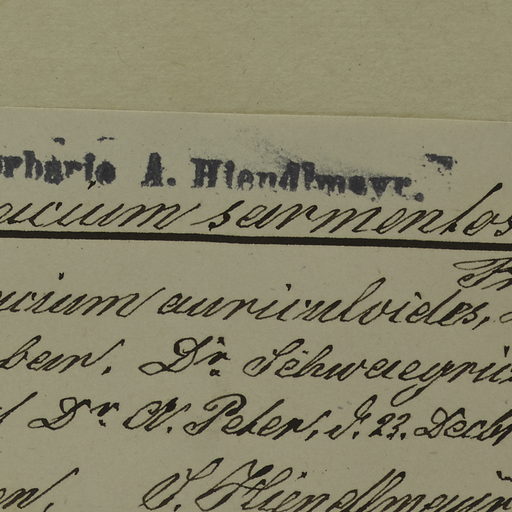 erbario A. Hiendlmayr.
acium sarmentos
Fr
acium auriculoides,
ber. Dr. Schwaegric
Dr. A. Peter, d. 23. Decbr
en, J. Hiendlmayr